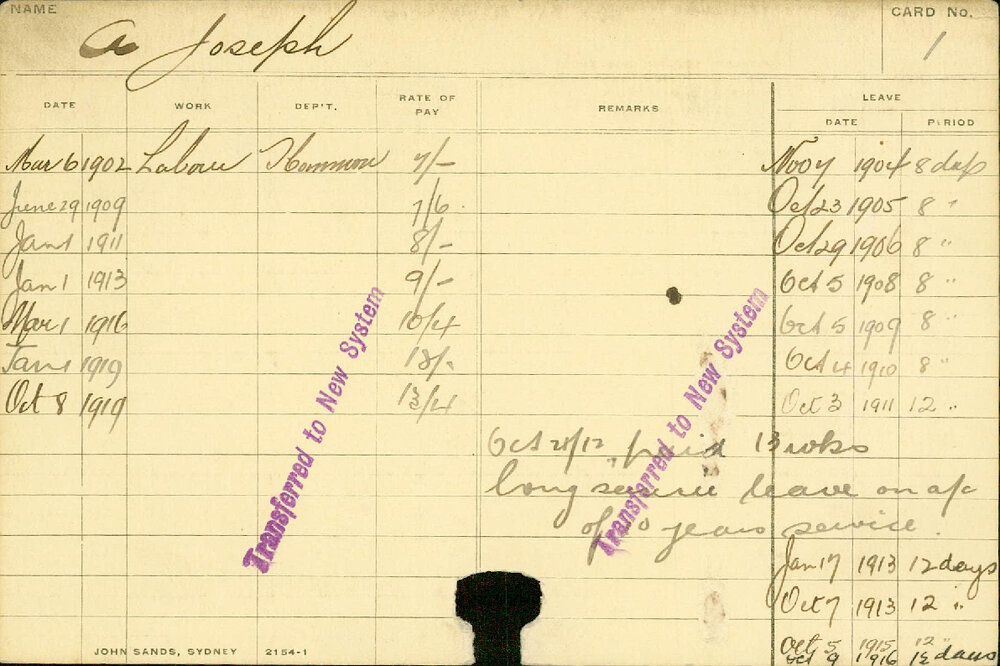 NAME
A Joseph
CARD No.
1
DATE WORK DEP'T. RATE OF PAY REMARKS LEAVE
DATE PERIOD
Mar 6 1902 Labour 7/- Nov 7 1904 8 days
June 29 1909 7/6 Oct 23 1905 8 "
Jan 1 1911 8/- Oct 29 1906 8 "
Jan 1 1913 9/- Oct 5 1908 8 "
Mar 1 1916 10/4 Oct 5 1909 8 "
Jan 1 1919 Oct 4 1910 8 "
Oct 8 1919 13/4 Oct 3 1911 12 "
Oct 28/12 paid 13 wks
long service leave on a/c
of 10 years service
Jan 17 1913 12 days
Oct 7 1913 12 "
Oct 5 1915 12 "
Oct 9 1916 days
Transferred to New System
Transferred to New System
JOHN SANDS, SYDNEY 2154-1